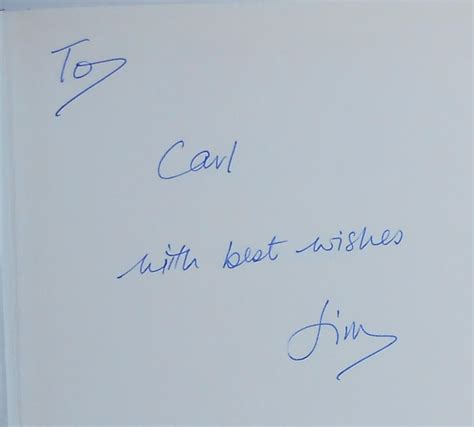 To
Carl
with best wishes
Jim